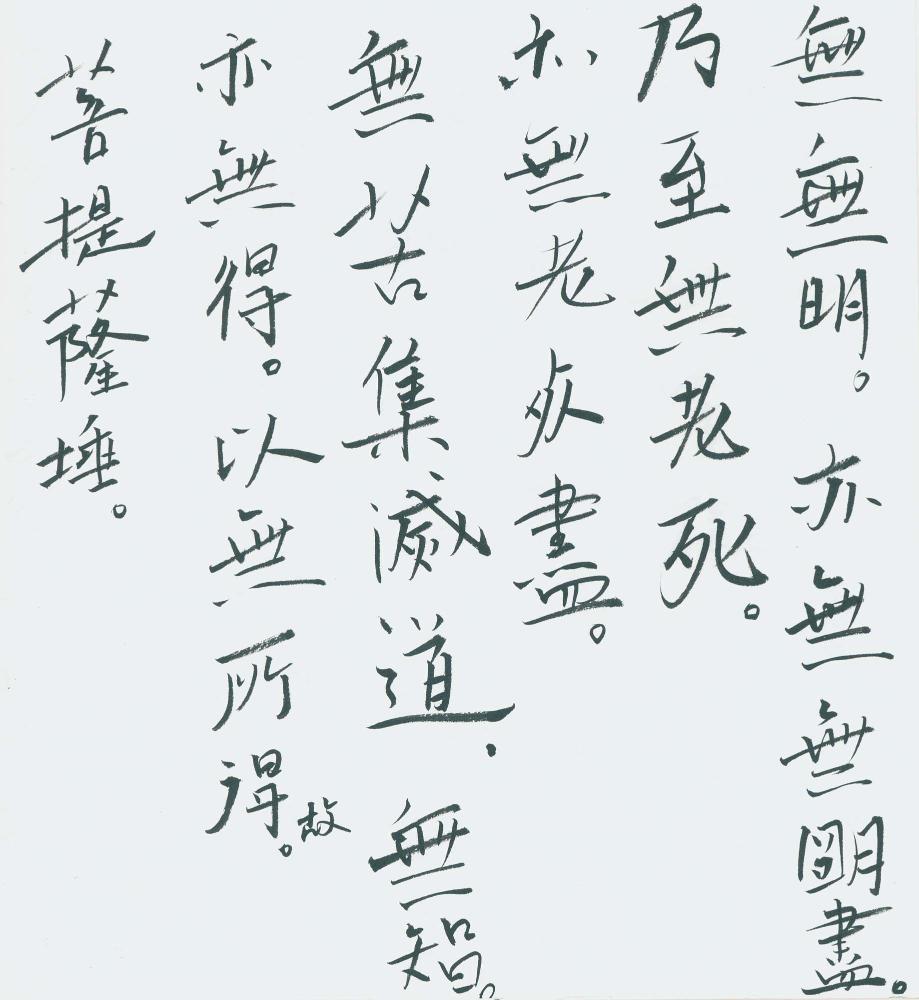 無無明。亦無無明盡。
乃至無老死。
亦無老死盡。
無苦集滅道.無智。
亦無得。以無所得故。
菩提薩埵。